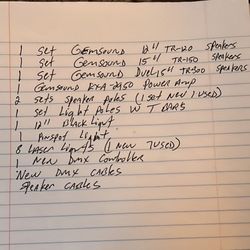 1 Set Gemsound 12" TR-120 Speakers
1 Set Gemsound 15" TR-150 Speakers
1 Set Gemsound Duel 15" TR300 Speakers
1 Gemsound Power Amp
2 Sets Speaker Poles (1 set New 1 used)
1 Set Light Poles W T BARS
1 12" Black Light
1 Pinspot Light
8 Laser Lights (1 New 7 used)
1 New DMX Controller
New DMX CABLES
Speaker CABLES